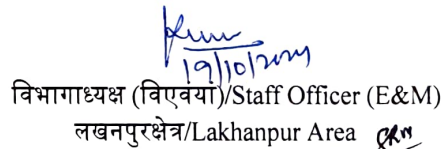 19/10/2024
विभागाध्यक्ष (विएवंयां)/Staff Officer (E&M)
लखनपुरक्षेत्र/Lakhanpur Area